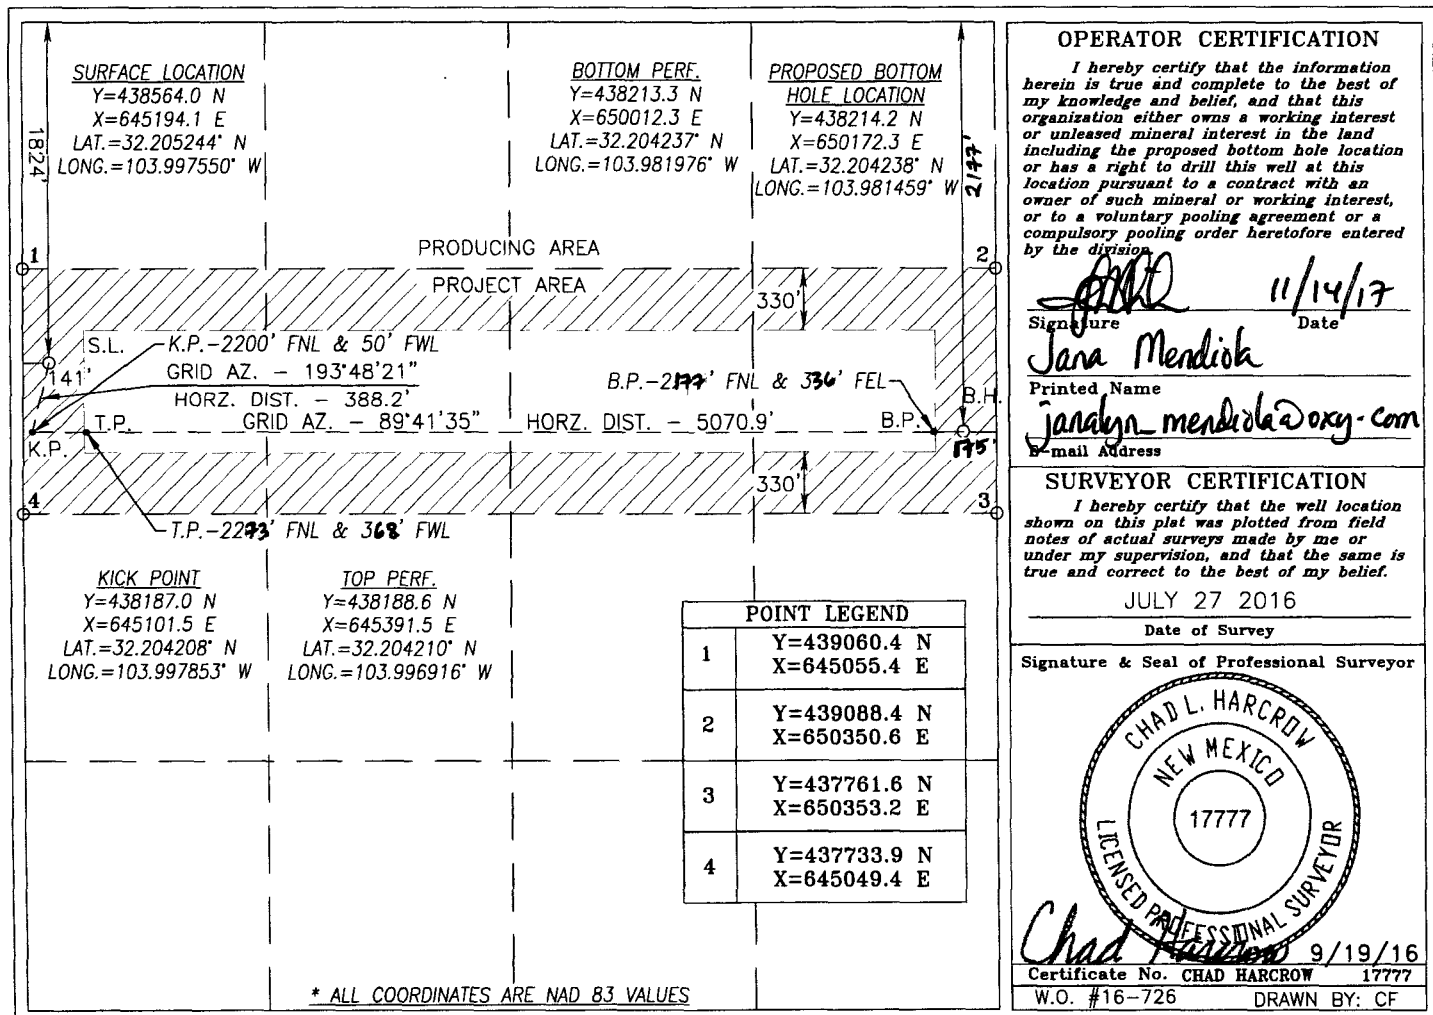 SURFACE LOCATION
Y=438564.0 N
X=645194.1 E
LAT.=32.205244° N
LONG.=103.997550° W
BOTTOM PERF.
Y=438213.3 N
X=650012.3 E
LAT.=32.204237° N
LONG.=103.981976° W
PROPOSED BOTTOM
HOLE LOCATION
Y=438214.2 N
X=650172.3 E
LAT.=32.204238° N
LONG.=103.981459° W
1824'
2177'
1
2
PRODUCING AREA
PROJECT AREA
330'
S.L.
K.P.-2200' FNL & 50' FWL
141'
GRID AZ. - 193°48'21"
HORZ. DIST. - 388.2'
B.P.-2177' FNL & 336' FEL
B.H.
T.P.
GRID AZ. - 89°41'35"
HORZ. DIST. - 5070.9'
B.P.
K.P.
175'
330'
4
3
T.P.-2273' FNL & 368' FWL
KICK POINT
Y=438187.0 N
X=645101.5 E
LAT.=32.204208° N
LONG.=103.997853° W
TOP PERF.
Y=438188.6 N
X=645391.5 E
LAT.=32.204210° N
LONG.=103.996916° W
POINT LEGEND
1 Y=439060.4 N
X=645055.4 E
2 Y=439088.4 N
X=650350.6 E
3 Y=437761.6 N
X=650353.2 E
4 Y=437733.9 N
X=645049.4 E
* ALL COORDINATES ARE NAD 83 VALUES
OPERATOR CERTIFICATION
I hereby certify that the information
herein is true and complete to the best of
my knowledge and belief, and that this
organization either owns a working interest
or unleased mineral interest in the land
including the proposed bottom hole location
or has a right to drill this well at this
location pursuant to a contract with an
owner of such mineral or working interest,
or to a voluntary pooling agreement or a
compulsory pooling order heretofore entered
by the division
11/14/17
Signature Date
Jana Mendiola
Printed Name
janalyn_mendiola@oxy.com
E-mail Address
SURVEYOR CERTIFICATION
I hereby certify that the well location
shown on this plat was plotted from field
notes of actual surveys made by me or
under my supervision, and that the same is
true and correct to the best of my belief.
JULY 27 2016
Date of Survey
Signature & Seal of Professional Surveyor
CHAD L. HARCROW
NEW MEXICO
17777
LICENSED PROFESSIONAL SURVEYOR
Chad Harcrow 9/19/16
Certificate No. CHAD HARCROW 17777
W.O. #16-726 DRAWN BY: CF